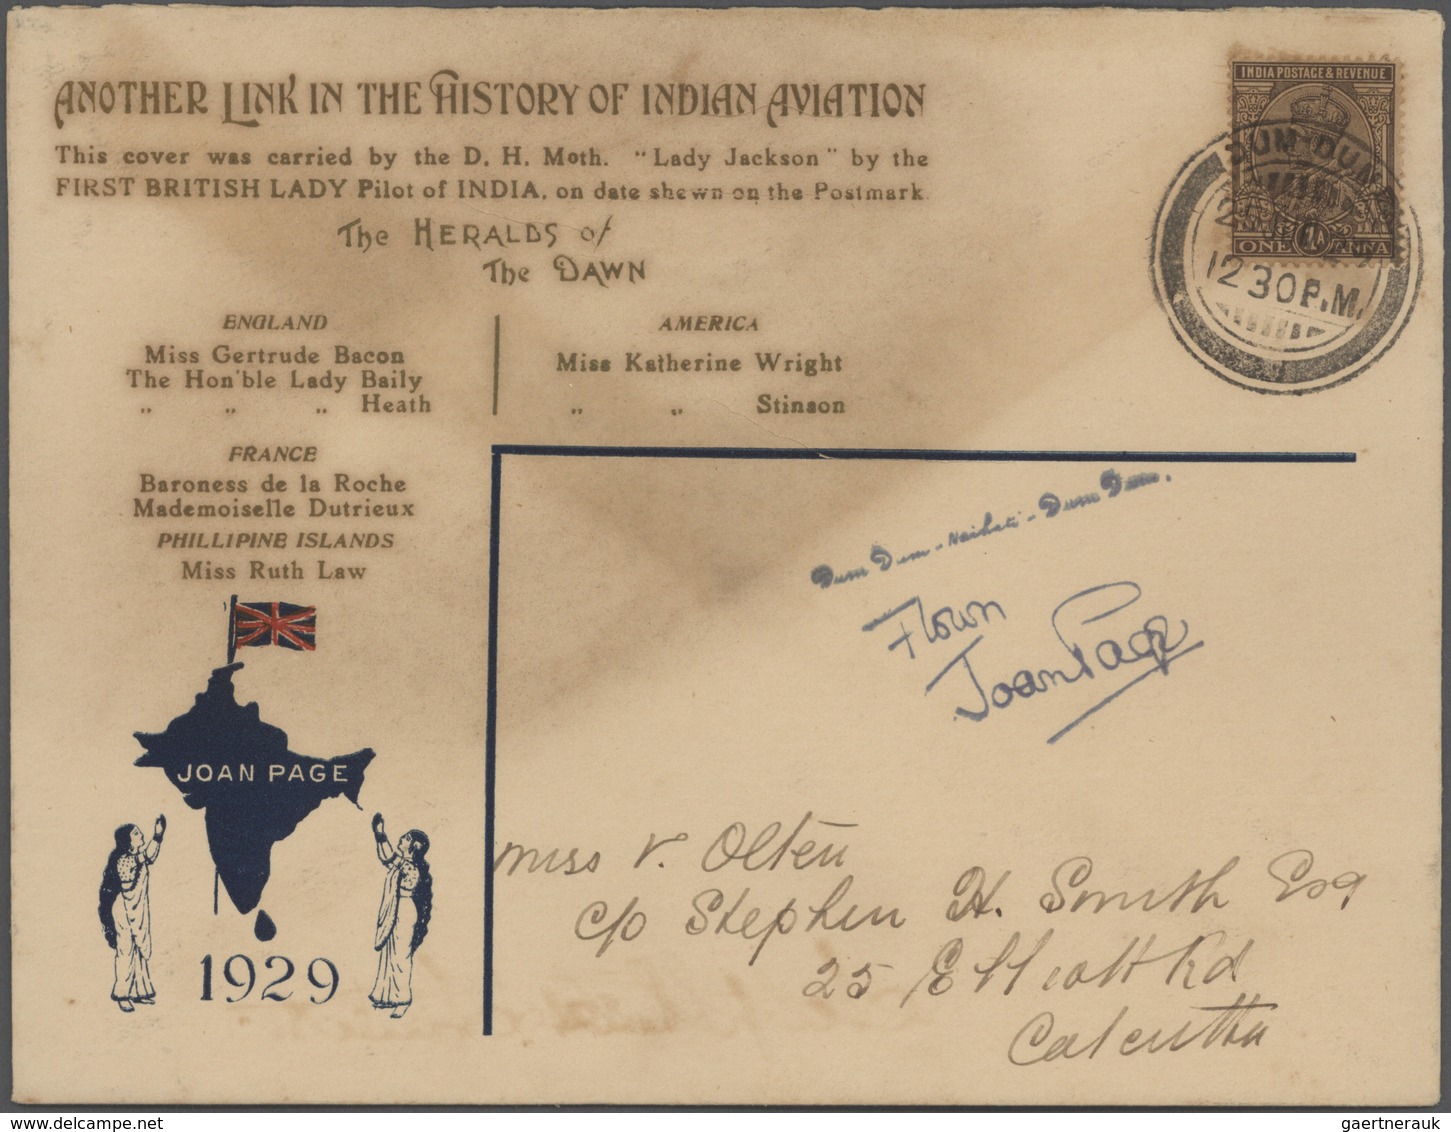 ANOTHER LINK IN THE HISTORY OF INDIAN AVIATION
This cover was carried by the D. H. Moth. "Lady Jackson" by the
FIRST BRITISH LADY Pilot of INDIA, on date shewn on the Postmark
The HERALDS of
The DAWN
ENGLAND
Miss Gertrude Bacon
The Hon'ble Lady Baily
„ „ „ Heath
AMERICA
Miss Katherine Wright
„ „ Stinson
FRANCE
Baroness de la Roche
Mademoiselle Dutrieux
PHILLIPINE ISLANDS
Miss Ruth Law
JOAN PAGE
1929
INDIA POSTAGE & REVENUE
ONE 1A ANNA
DUM-DUM
12 30 P.M.
Dum Dum - Naihati - Dum Dum.
Flown
Joan Page
Miss V. Olten
c/o Stephen H. Smith Esq
25 Elliott Rd
Calcutta
gaertnerauk @ delcampe.net